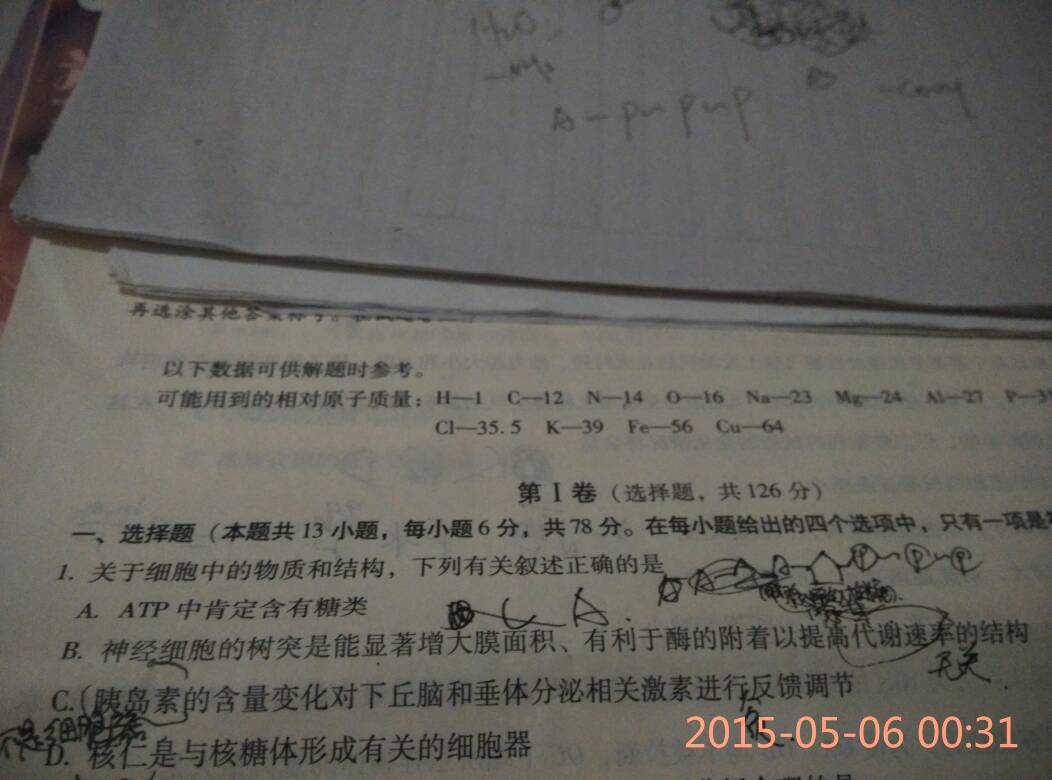 H₂O
A - p~p~p
再选涂其他答案标号。
以下数据可供解题时参考。
可能用到的相对原子质量：H—1 C—12 N—14 O—16 Na—23 Mg—24 Al—27 P—31
Cl—35.5 K—39 Fe—56 Cu—64
第Ⅰ卷（选择题，共126分）
一、选择题（本题共13小题，每小题6分，共78分。在每小题给出的四个选项中，只有一项是
1. 关于细胞中的物质和结构，下列有关叙述正确的是
A. ATP中肯定含有糖类
B. 神经细胞的树突是能显著增大膜面积、有利于酶的附着以提高代谢速率的结构
无关
C. 胰岛素的含量变化对下丘脑和垂体分泌相关激素进行反馈调节
不是细胞器
D. 核仁是与核糖体形成有关的细胞器
2015-05-06 00:31